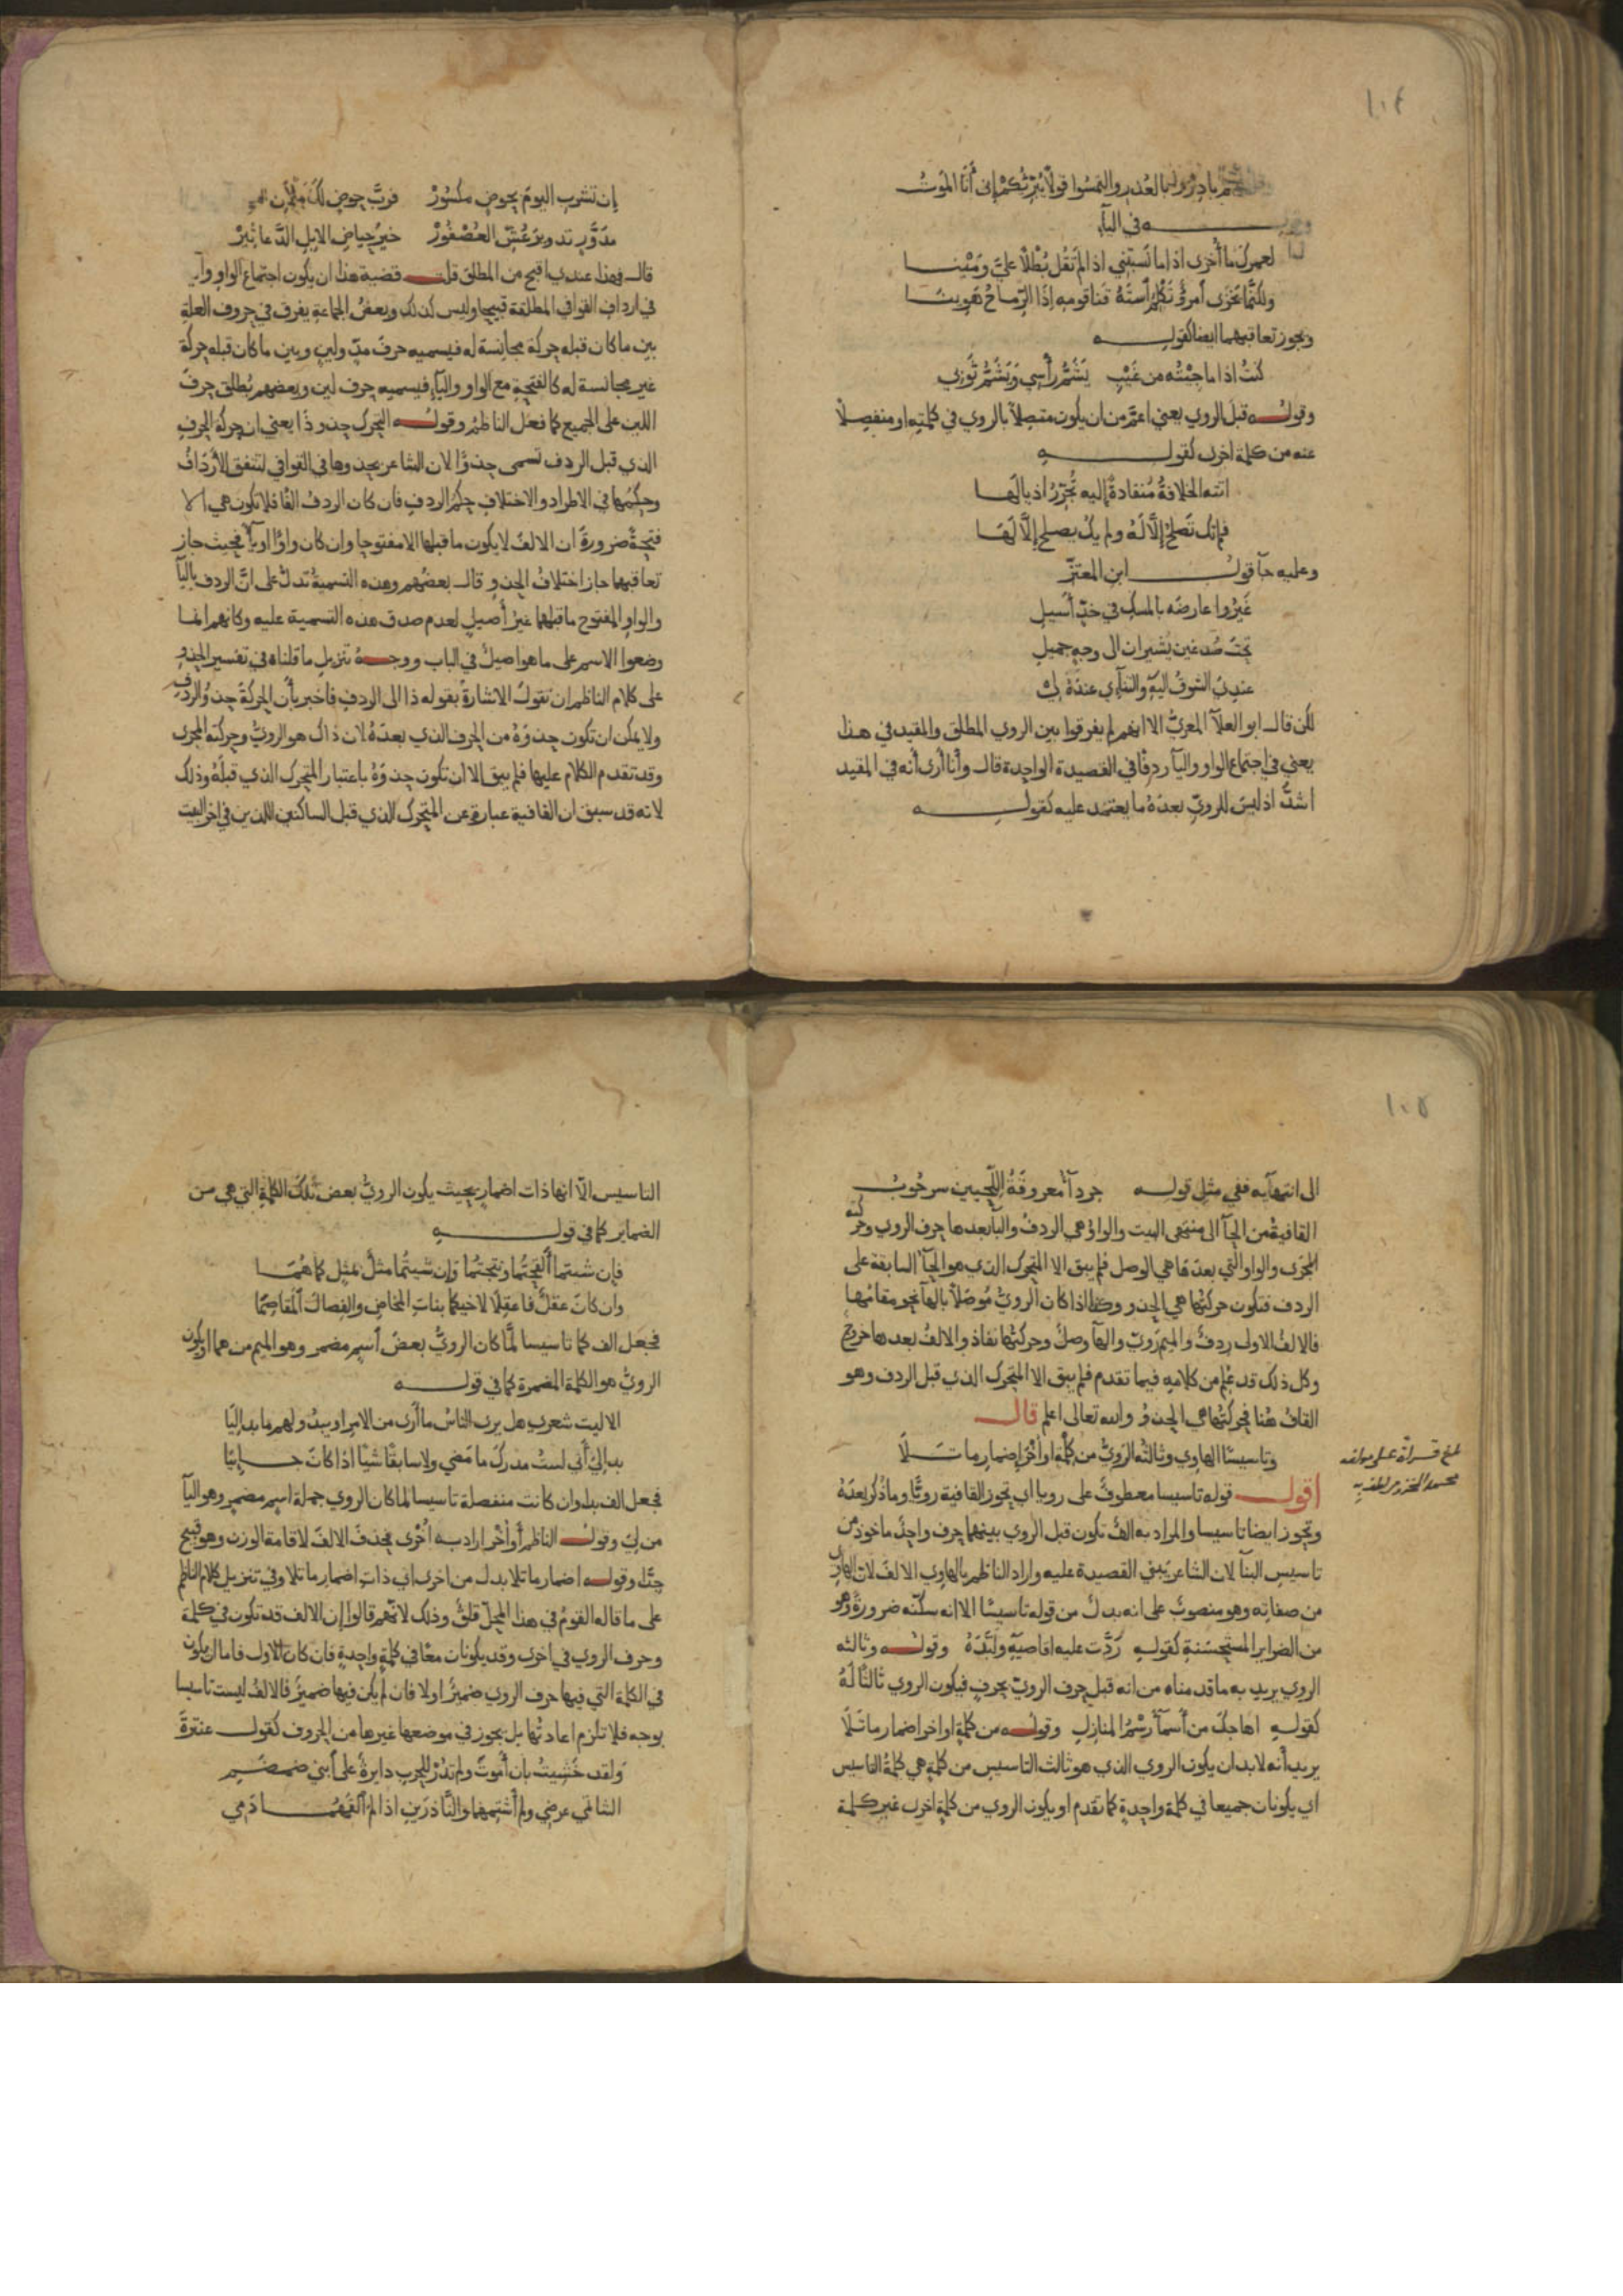 ١٠٤
بادروا بالعُذر والتمسُوا قولًا يُبَرِّئكمْ إني أنَا الموتُ
في اليآء
لعمرك ما أُخزى اذا ما نَسَبْتني اذا لم تَقُل بُطْلًا عليَّ ومَيْنا
ولكنَّما يَخزَى امرؤٌ تَكْلِمُ اسْتَهُ قَنا قومِه إذا الرّماحُ هَوِينَا
ويجوز تعاقبهما ايضا كقوله
كنتُ اذا ما جئتُه من غَيْبِ يَشَمُّ رأسِي وَيَشَمُّ ثَوْبي
وقوله قبلَ الروي يعني اعمَّ من ان يكون متصِلًا بالروي في كلمته او منفصِلًا
عنه من كلمة اخرى كقوله
اتته الخلافةُ مُنقادةً إليه تُجَرِّرُ اذيالَها
فلم تك تَصلحُ إلَّا لَهُ ولم يكُ يصلح إلَّا لَهَا
وعليه جآء قول ابن المعتزّ
غَيَّرُوا عارضَه بالمسكِ في خدٍّ أَسيلِ
تحتَ صُدغين يُشيران الى وجهٍ جميلِ
عندِيَ الشوقُ اليهِ والتنآئي عندَهُ لي
لكن قال ابو العلآء المعريُّ الا انهم لم يفرقوا بين الروي المطلق والمقيد في هذا
يعني في اجتماع الواو واليآء ردفًا في القصيدة الواحدة قال وأنا أرى أنه في المقيد
اشدُّ اذ ليسَ للرويِّ بعدَهُ ما يعتمد عليه كقوله
إن تشربِ اليومَ بحوضٍ مكسُورْ فربَّ حوضٍ لكَ
مدَوَّرٍ تدويرَ عُشِّ العُصْفُورْ خيرُ حياضِ الابلِ الدَّعاثِيرْ
قال فهذا عندي اقبح من المطلق قلت قضية هذا ان يكون اجتماع الواو واليآء
في ارداف القوافي المطلقة قبيحا وليس كذلك وبعضُ الجماعةِ يفرق في حروف العلةِ
بين ما كان قبله حركة مجانسة له فيسميه حرفَ مدٍّ ولينٍ وبين ما كان قبله حركة
غير مجانسة له كالفتحة مع الواو واليآء فيسميه حرف لين وبعضهم يُطلق حرفَ
اللين على الجميع كما فعَل الناظمُ وقوله التحرك حذوذَا يعني ان حركة الحرفِ
الذي قبل الردف تسمى حذوًا لان الشاعر يحذوها في القوافي لتتفق الأردَافُ
وحكمُها في الاطراد والاختلافِ حكمُ الردفِ فان كان الردفُ الفًا فلا تكون هي الا
فتحةً ضرورةَ ان الالفَ لا يكون ما قبلها الا مفتوحا وان كان واوًا او يآءً فحيث جاز
تعاقبهما جاز اختلافُ الحذوِ وقال بعضُهم وهذه التسميةُ تدلُّ على انَّ الردف باليآء
والواو المفتوح ما قبلهما غيرُ أصيلٍ لعدم صدق هذه التسمية عليه وكانهم انما
وضعوا الاسم على ما هو اصيلٌ في الباب ووجهُ تنزيلِ ما قلناه في تفسير الحذوِ
على كلام الناظم ان تقولَ الاشارةُ بقوله ذا الى الردفِ فاخبر بأن الحركةَ حذوُ الردفِ
ولا يمكن ان تكون حذوَهُ من الحرف الذي بعدَهُ لان ذاك هو الرويُّ وحركته المجرى
وقد تقدم الكلام عليها فلم يبقَ الا ان تكون حذوَهُ باعتبار المتحرك الذي قبلَهُ وذلك
لانه قد سبق ان القافية عبارة عن المتحرك الذي قبل الساكنين اللذين في اخر البيت
١٠٥
الى انتهآيه ففي مثلِ قوله جردآءُ معروقَةُ اللَّحيينِ سرحُوبُ
القافيةُ من الحآء الى منتهى البيت والواوُ هي الردفُ والبآء بعدها حرف الروي وحركته
المجرَى والواو التي بعدَها هي الوصل فلم يبق الا المتحرك الذي هو الحآء السابقة على
الردف فتكون حركتُها هي الحذو وهكذا اذا كان الرويُّ مُوصَلًا بالهآء نحو مقامُها
فالالفُ الاولى ردفٌ والميم رويّ والهآء وصلٌ وحركتُها نفاذ والالفُ بعدها خروجٌ
وكل ذلك قد عُلِمَ من كلامِه فيما تقدم فلم يبق الا المتحرك الذي قبل الردف وهو
القافُ هُنا فحركتُها هي الحذوُ والله تعالى اعلم قال
وتاسيسًا الهاوي وثالثُه الرويُّ من كلْمةٍ او أُخْرَ إضمارِ ما تَلَا
بلغ قراة على مولفه
محمد المخزومي لطف به
اقول قوله تاسيسا معطوفٌ على رويا اي تحوز القافية رويًّا وما ذُكر بعدَهُ
وتحوز ايضا تاسيسا والمراد به الفٌ تكون قبل الروي بينهما حرف واحدٌ ماخوذ من
تاسيسِ البنآء لان الشاعر يَبني القصيدة عليه واراد الناظم بالهاوي الالفَ لان الهاوي
من صفاته وهو منصوبٌ على انه بدلٌ من قوله تاسيسًا الا انه سكنَّه ضرورةً وهو
من الضراير المستحسَنةِ كقوله رَدَّت عليه اقاصيَهِ ولَبَّدَهُ وقوله وثالثه
الروي يريد به ما قدمناه من انه قبل حرف الرويّ بحرفٍ فيكون الروي ثالثًا لَهُ
كقوله اهاجكَ من أسمآءَ رَسْمُ المنازلِ وقوله من كلمةٍ او اخر اضمار ما تَلَا
يريد أنه لا بد ان يكون الروي الذي هو ثالث التاسيسِ من كلمةٍ هي كلمةُ التاسيس
اي يكونان جميعا في كلمة واحدةٍ كما تقدم او يكون الروي من كلمةٍ اخرى غير كلمة
التاسيس الّا انها ذات اضمارٍ بحيث يكون الرويُّ بعض تلك الكلمةِ التي هي من
الضماير كما في قوله
فإن شيتما أَلقَحتُما ونتجتُما وَإن شيتُما مثلٌ بمثلٍ كما هُمَا
وان كانَ عقلٌ فاعقِلَا لاخيكما بناتِ المخاضِ والفِصالَ المقاحِمَا
فجعل الف كما تاسيسا لمَّا كان الرويُّ بعضَ أسمٍ مضمر وهو الميم من هما او يكون
الرويُّ هو الكلمة المضمرة كما في قوله
الا ليت شعري هل يرى الناسُ ما أرى من الامرِ او يبدُو لهم ما بدا ليَا
بدا ليَ أني لستُ مدركَ ما مَضي ولا سابقًا شيًا اذا كانَ جــائيَا
فجعل الف بدا وان كانت منفصلة تاسيسا لما كان الروي جملة اسمٍ مضمرٍ وهو اليآء
من لي وقولُه الناظم أو أُخْر اراد به أُخْرى فحذفَ الالفَ لاقامة الوزن وهو قبيح
جدًّا وقوله اضمار ما تلا بدل من اخرى اي ذاتِ اضمارِ ما تلا وفي تنزيل كلام الناظم
على ما قاله القومُ في هذا المحلّ قلقٌ وذلك لانّهم قالوا إن الالف قد تكون في كلمة
وحرف الروي في اخرى وقد يكونان معًا في كلمةٍ واحدةٍ فان كان الاول فاما ان يكون
في الكلمة التي فيها حرف الروي ضميرٌ اولا فان لم يكن فيها ضميرٌ فالالفُ ليست تاسيسا
بوجه فلا تلزم اعادتُها بل يجوز في موضعها غيرها من الحروف كقول عنترةَ
وَلقد خَشِيتُ بان أموتَ ولم تَدُرْ للحربِ دايرةٌ على ابْنَي ضمضَمِ
الشاتمَي عرضِي ولم أشتِمهُما والنَّاذِرَينِ اذا لم ألقَهُمــا دَمِي